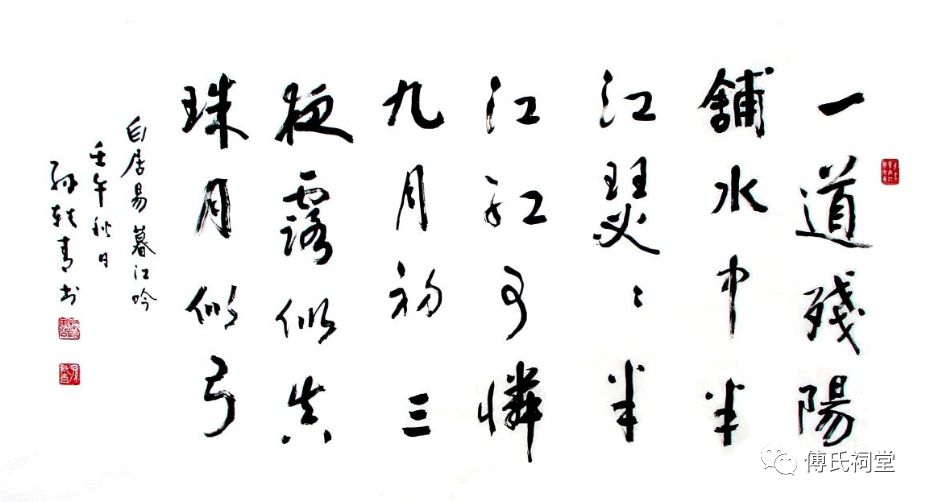 一道殘陽
舖水中半
江瑟〻半
江紅可憐
九月初三
夜露似真
珠月似弓
白居易暮江吟
壬午秋日
孙轶青书
傅氏祠堂